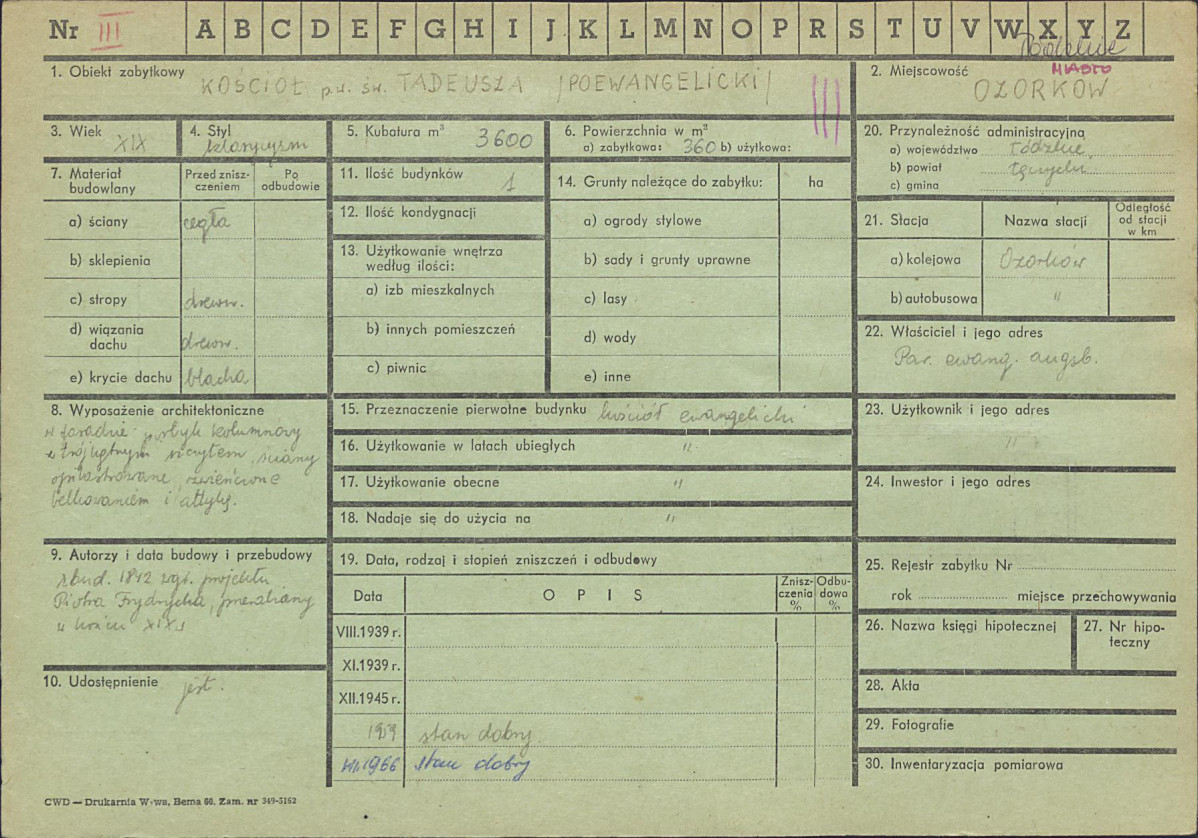 Nr III A B C D E F G H I J K L M N O P R S T U V W X Y Z
1. Obiekt zabytkowy KOŚCIÓŁ p.w. św. TADEUSZA /POEWANGELICKI/ III
2. Miejscowość MIASTO
OZORKÓW
3. Wiek XIX
4. Styl klasycyzm
5. Kubatura m³ 3600
6. Powierzchnia w m²
a) zabytkowa: 360 b) użytkowa:
20. Przynależność administracyjna
a) województwo łódzkie
b) powiat łęczycki
c) gmina
7. Materiał budowlany
Przed zniszczeniem
Po odbudowie
a) ściany cegła
b) sklepienia
c) stropy drewn.
d) wiązania dachu drewn.
e) krycie dachu blacha
11. Ilość budynków 1
12. Ilość kondygnacji
13. Użytkowanie wnętrza
według ilości:
a) izb mieszkalnych
b) innych pomieszczeń
c) piwnic
14. Grunty należące do zabytku: ha
a) ogrody stylowe
b) sady i grunty uprawne
c) lasy
d) wody
e) inne
21. Stacja Nazwa stacji Odległość od stacji w km
a) kolejowa Ozorków
b) autobusowa "
22. Właściciel i jego adres
Par. ewang. augsb.
8. Wyposażenie architektoniczne
w fasadzie portyk kolumnowy
z trójkątnym szczytem, ściany
opilastrowane, zwieńczone
belkowaniem i attyką.
15. Przeznaczenie pierwotne budynku kościół ewangelicki
16. Użytkowanie w latach ubiegłych "
17. Użytkowanie obecne "
18. Nadaje się do użycia na "
23. Użytkownik i jego adres
"
24. Inwestor i jego adres
9. Autorzy i data budowy i przebudowy
zbud. 1842 wg. projektu
Piotra Frydrycha, przerabiany
w końcu XIX w
10. Udostępnienie jest.
19. Data, rodzaj i stopień zniszczeń i odbudowy
Data OPIS Zniszczenia % Odbudowa %
VIII.1939 r.
XI.1939 r.
XII.1945 r.
1959 stan dobry
VII.1966 stan dobry
25. Rejestr zabytku Nr
rok miejsce przechowywania
26. Nazwa księgi hipotecznej
27. Nr hipoteczny
28. Akta
29. Fotografie
30. Inwentaryzacja pomiarowa
CWD — Drukarnia W-wa, Bema 60. Zam. nr 349-5162